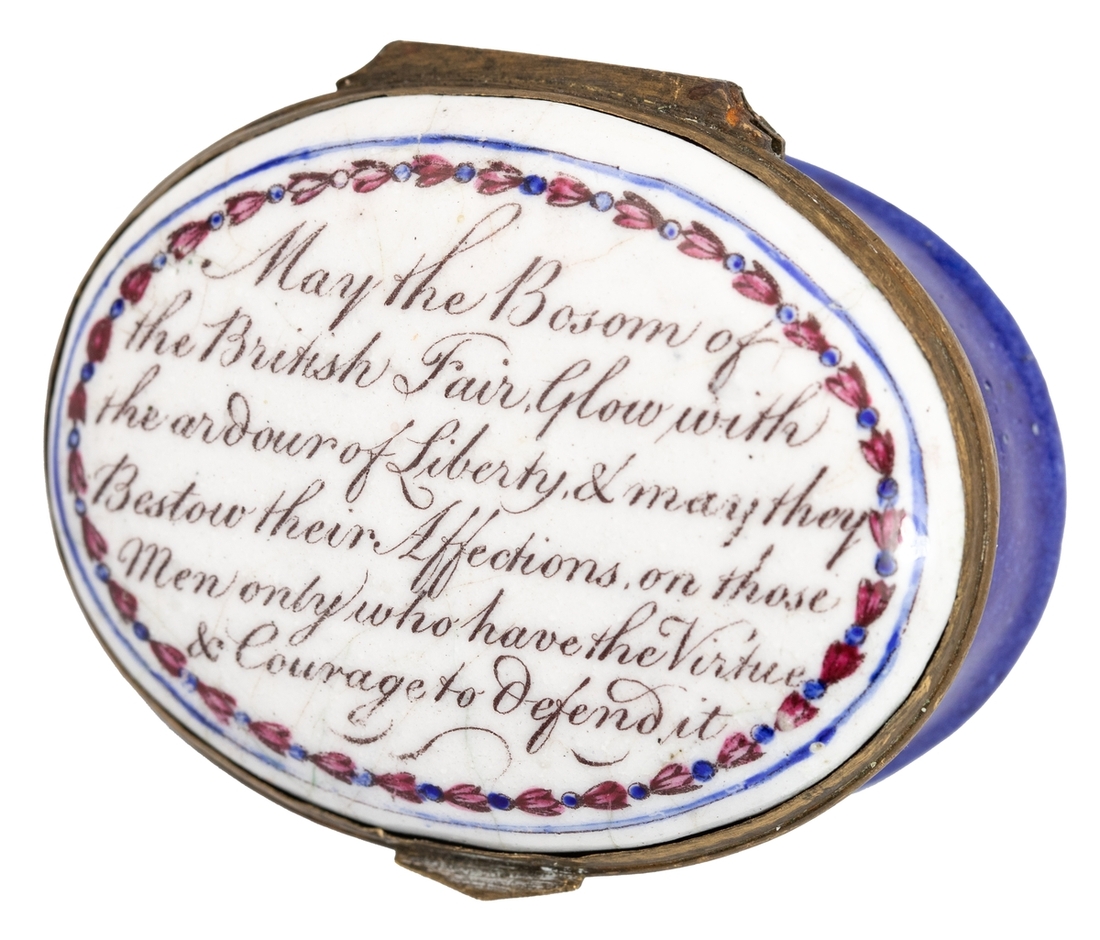 May the Bosom of
the British Fair, Glow with
the ardour of Liberty, & may they
Bestow their Affections, on those
Men only who have the Virtue
& Courage to defend it